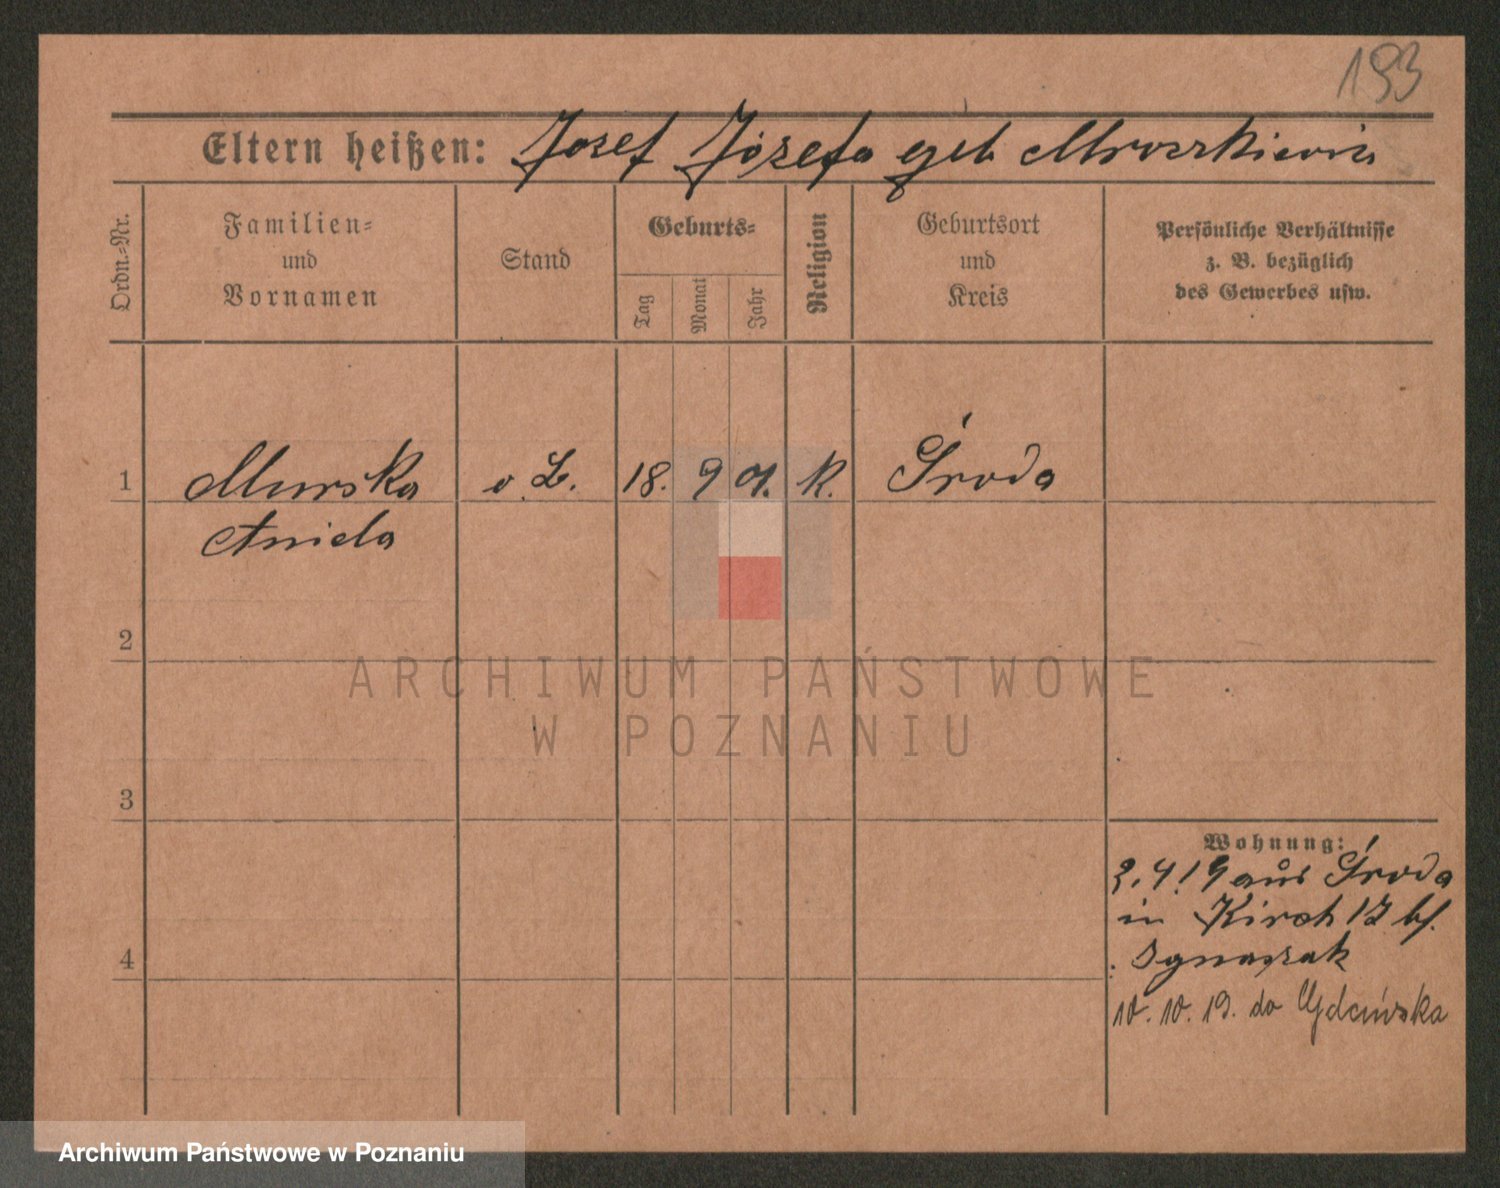 193
Eltern heißen: Josef Józefa geb Mroczkiewicz
Ordn.-Nr.
Familien-
und
Vornamen
Stand
Geburts-
Tag
Monat
Jahr
Religion
Geburtsort
und
Kreis
Persönliche Verhältnisse
z. B. bezüglich
des Gewerbes usw.
1 Murska o. B. 18. 9 01. K. Środa
Aniela
2
ARCHIWUM PAŃSTWOWE
W POZNANIU
3
Wohnung:
2.4.19 aus Środa
in Kirch 17 bf.
4
Ignaszak
10.10.19. do Gdańska
Archiwum Państwowe w Poznaniu